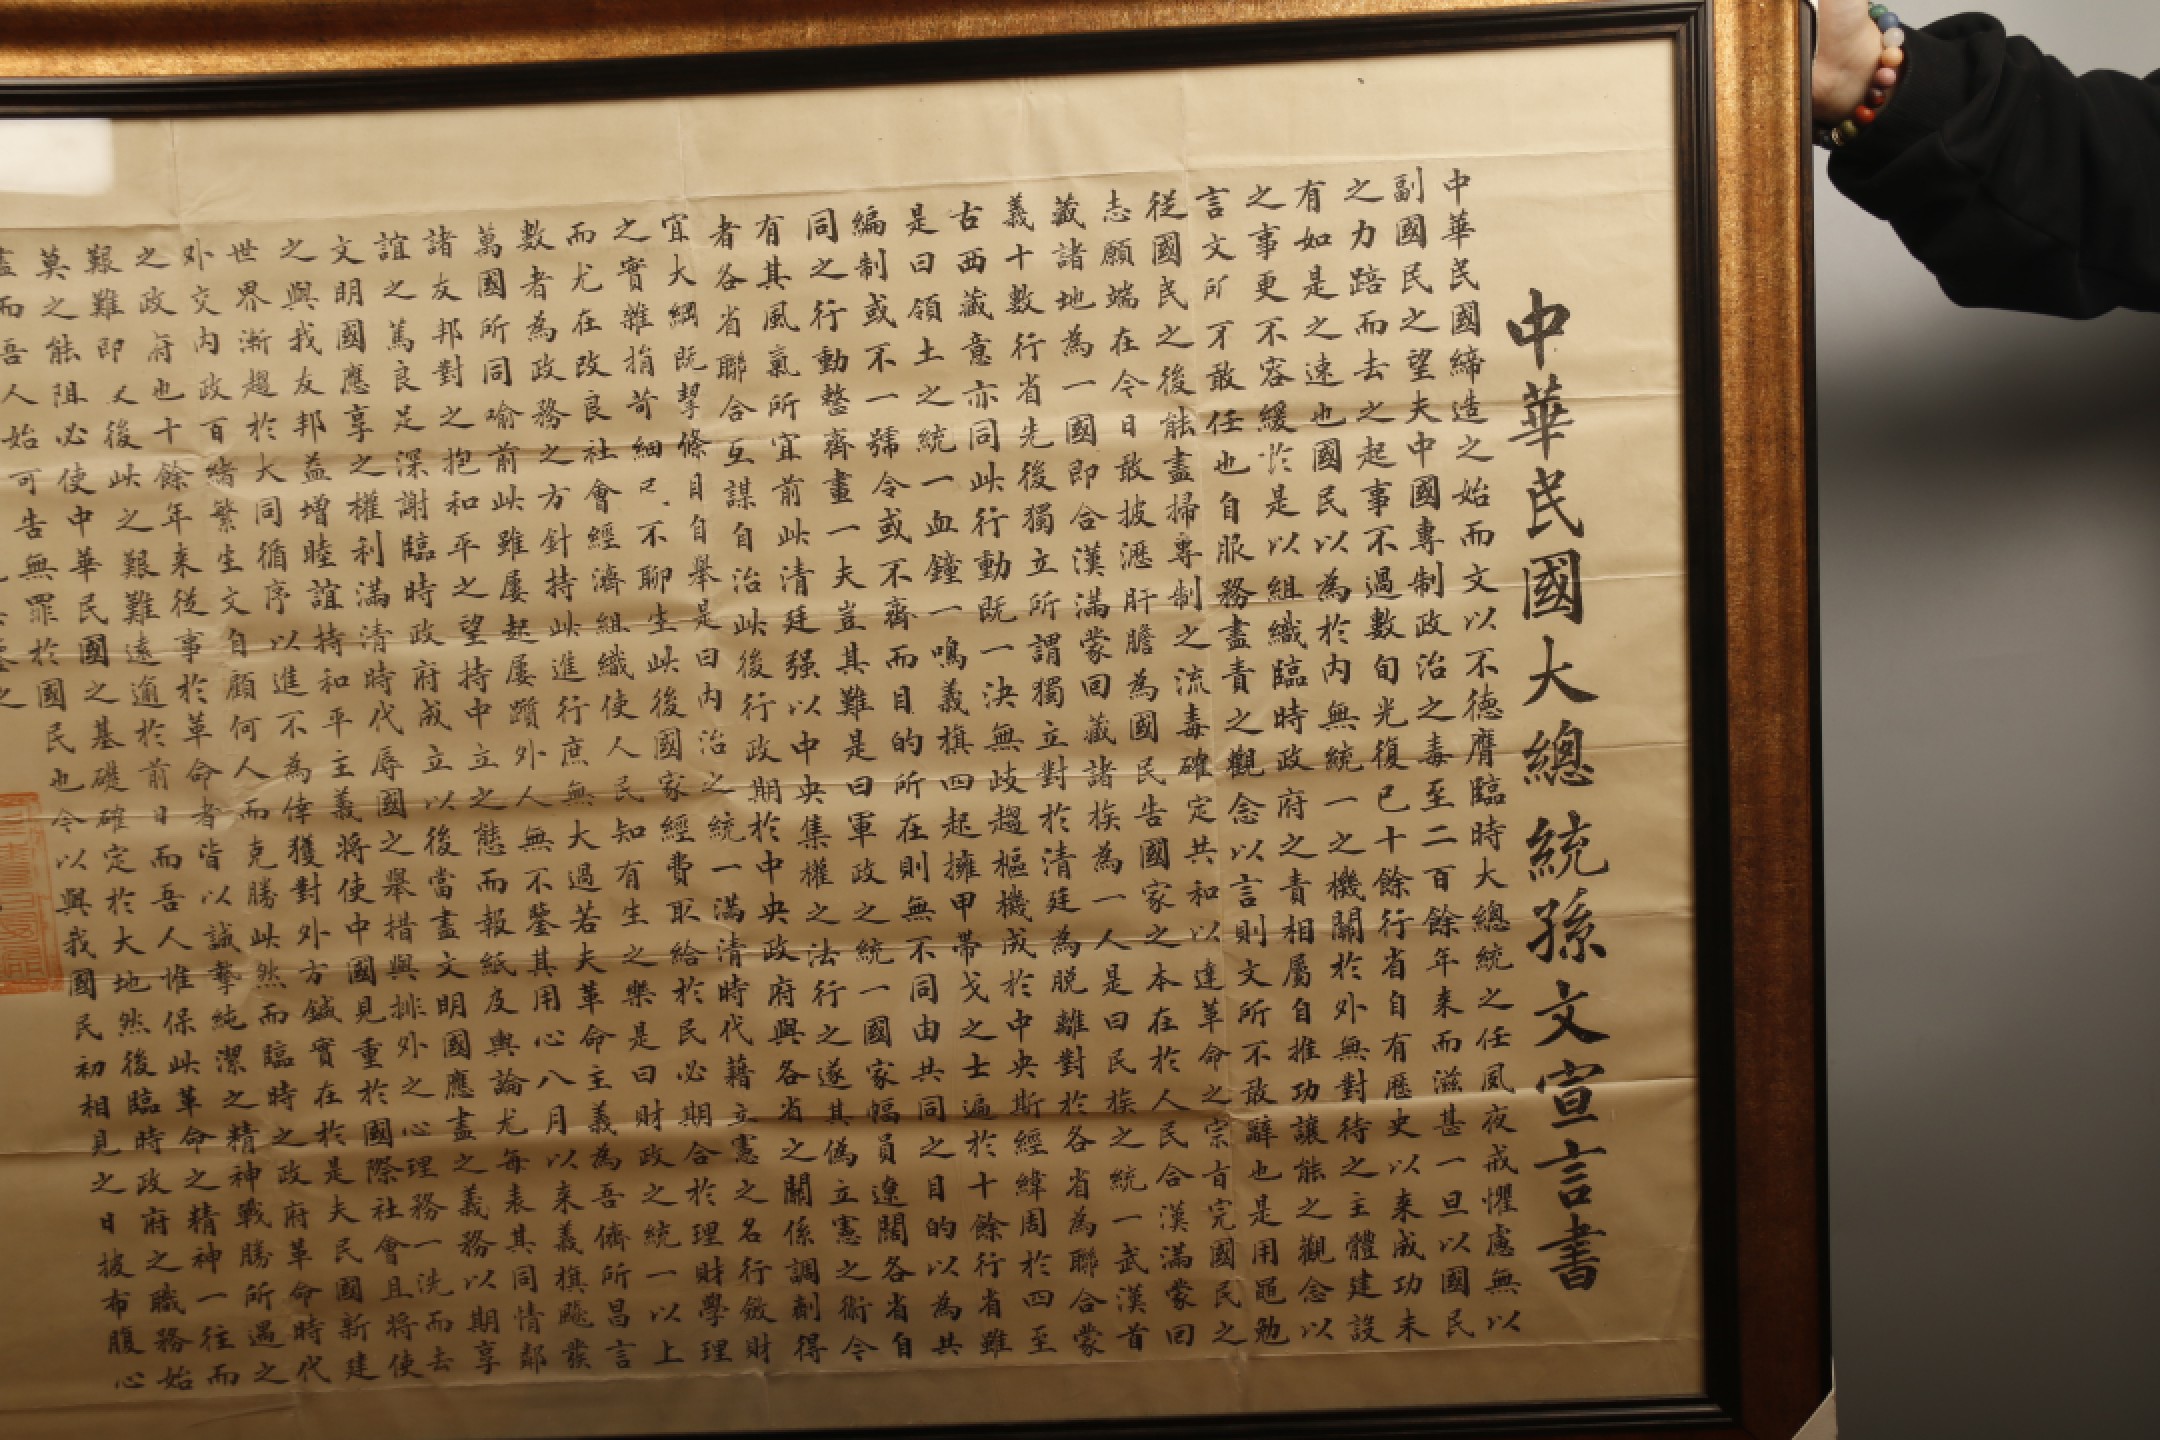 中華民國大總統孫文宣言書
中華民國締造之始而文以不德膺臨時大總統之任夙夜戒懼慮無以
副國民之望夫中國專制政治之毒至二百餘年來而滋甚一旦以國民
之力踣而去之起事不過數旬光復已十餘行省自有歷史以來成功未
有如是之速也國民以為於內無統一之機關於外無對待之主體建設
之事更不容緩於是以組織臨時政府之責相屬自推功讓能之觀念以
言文所不敢任也自服務盡責之觀念以言則文所不敢辭也是用黽勉
從國民之後能盡掃專制之流毒確定共和以達革命之宗旨完國民之
志願端在今日敢披瀝肝膽為國民告國家之本在於人民合漢滿蒙回
藏諸地為一國即合漢滿蒙回藏諸族為一人是曰民族之統一武漢首
義十數行省先後獨立所謂獨立對於清廷為脫離對於各省為聯合蒙
古西藏意亦同此行動既一決無歧趨樞機成於中央斯經緯周於四至
是曰領土之統一血鐘一鳴義旗四起擁甲帶戈之士遍於十餘行省雖
編制或不一號令或不齊而目的所在則無不同由共同之目的以為共
同之行動整齊畫一夫豈其難是曰軍政之統一國家幅員遼闊各省自
有其風氣所宜前此清廷强以中央集權之法行之遂其偽立憲之術今
者各省聯合互謀自治此後行政期於中央政府與各省之關係調劑得
宜大綱既挈條目自舉是曰內治之統一滿清時代藉立憲之名行斂財
之實雜捐苛細不聊生此後國家經費取給於民必期合於理財學理
而尤在改良社會經濟組織使人民知有生之樂是曰財政之統一以上
數者為政務之方針持此進行庶無大過若夫革命主義為吾儕所昌言
萬國所同喻前此雖屢起屢躓外人無不鑒其用心八月以來義旗飈發
諸友邦對之抱和平之望持中立之態而報紙及輿論尤每表其同情鄰
誼之篤良足深謝臨時政府成立以後當盡文明國應盡之義務以期享
文明國應享之權利滿清時代辱國之舉措與排外之心理務一洗而去
之與我友邦益增睦誼持和平主義將使中國見重於國際社會且將使
世界漸趨於大同循序以進不為倖獲對外方鍼實在於是夫民國新建
外交內政百緒繁生文自顧何人而克勝此然而臨時之政府革命時代
之政府也十餘年來從事於革命者皆以誠摯純潔之精神戰勝所遇之
艱難即後此之艱難遠逾於前日而吾人惟保此革命之精神一往而
莫之能阻必使中華民國之基礎確定於大地然後臨時政府之職務始
盡而吾人始可告無罪於國民也今以與我國民初相見之日披布腹心